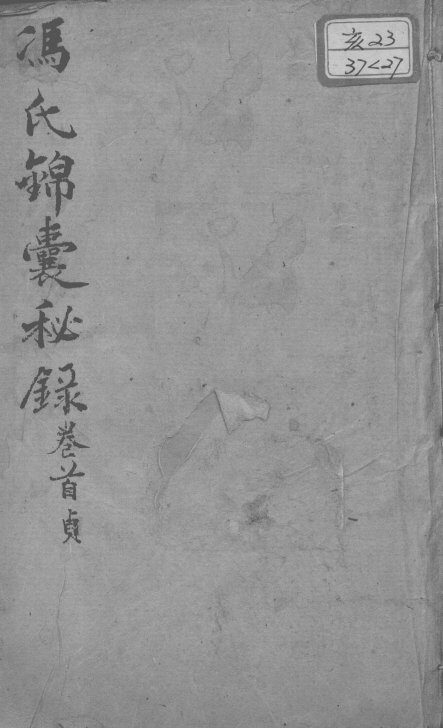 馮氏錦囊秘録 卷首貞
亥23
37<27